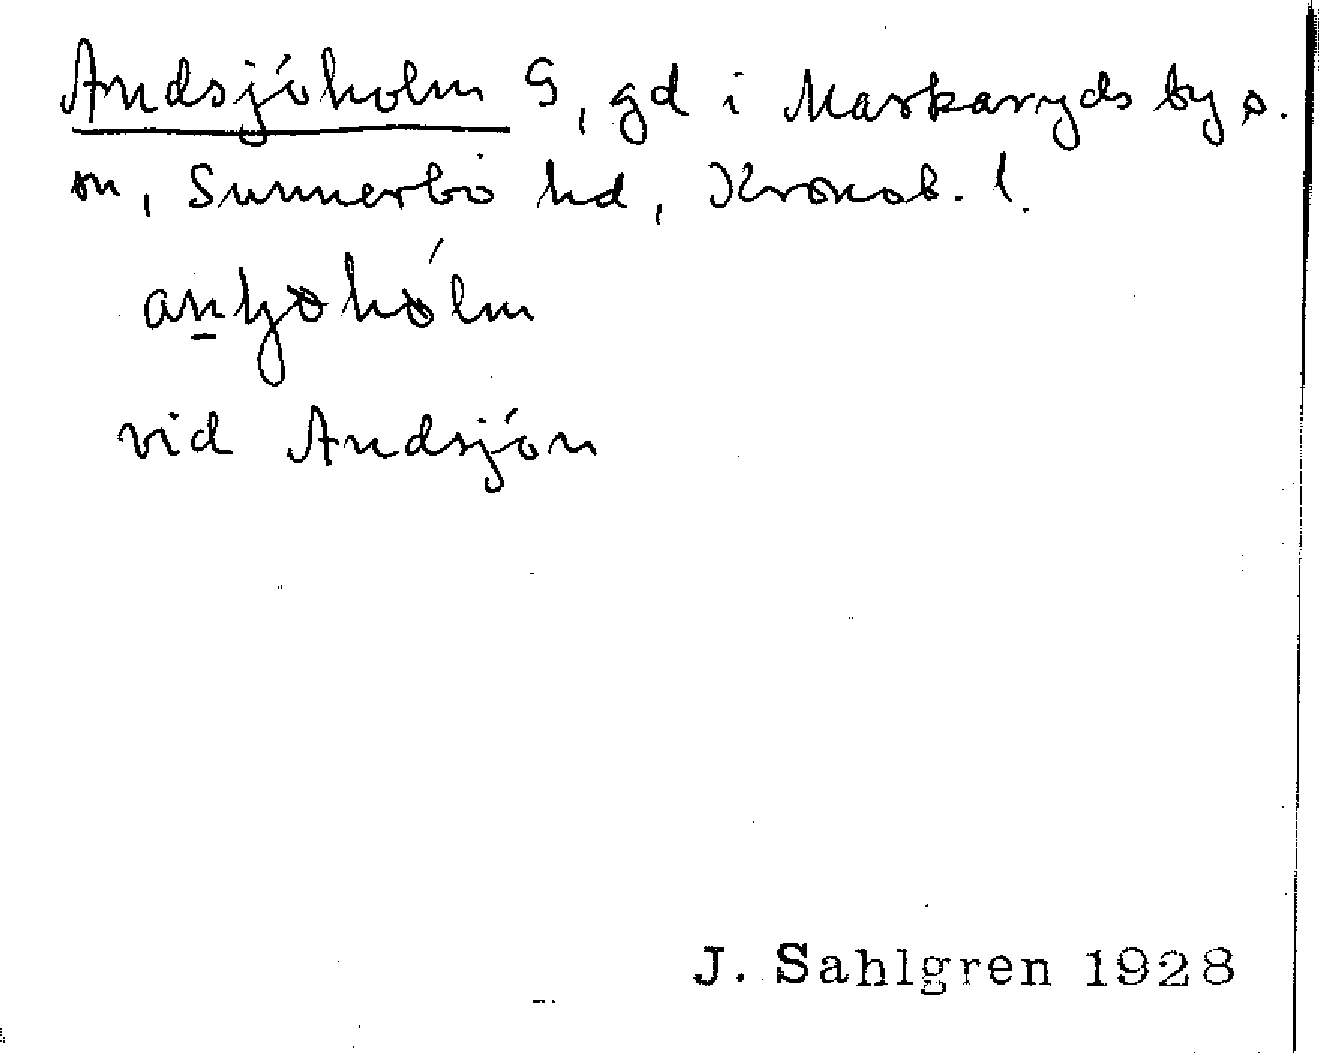 Andsjöholm G, gd i Markaryds by o.
sn, Sunnerbo hd, Kronob. l.
vid Andsjön
J. Sahlgren 1928